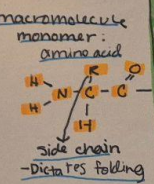 macromolecule
monomer:
amino acid
H R O
N - C - C -
H
H
side chain
- Dictates folding